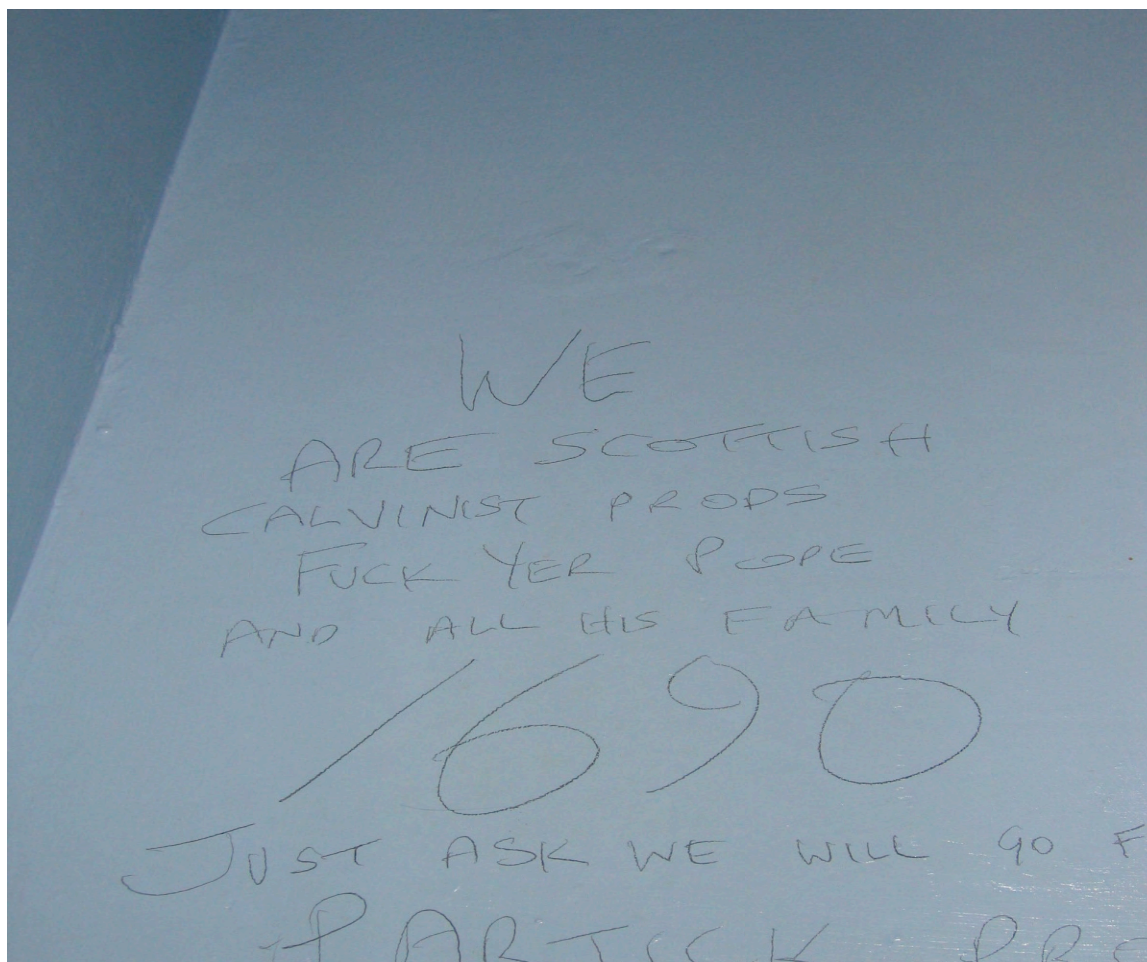 WE
ARE SCOTTISH
CALVINIST PRODS
FUCK YER POPE
AND ALL HIS FAMILY
1690
JUST ASK WE WILL GO
PARTICK